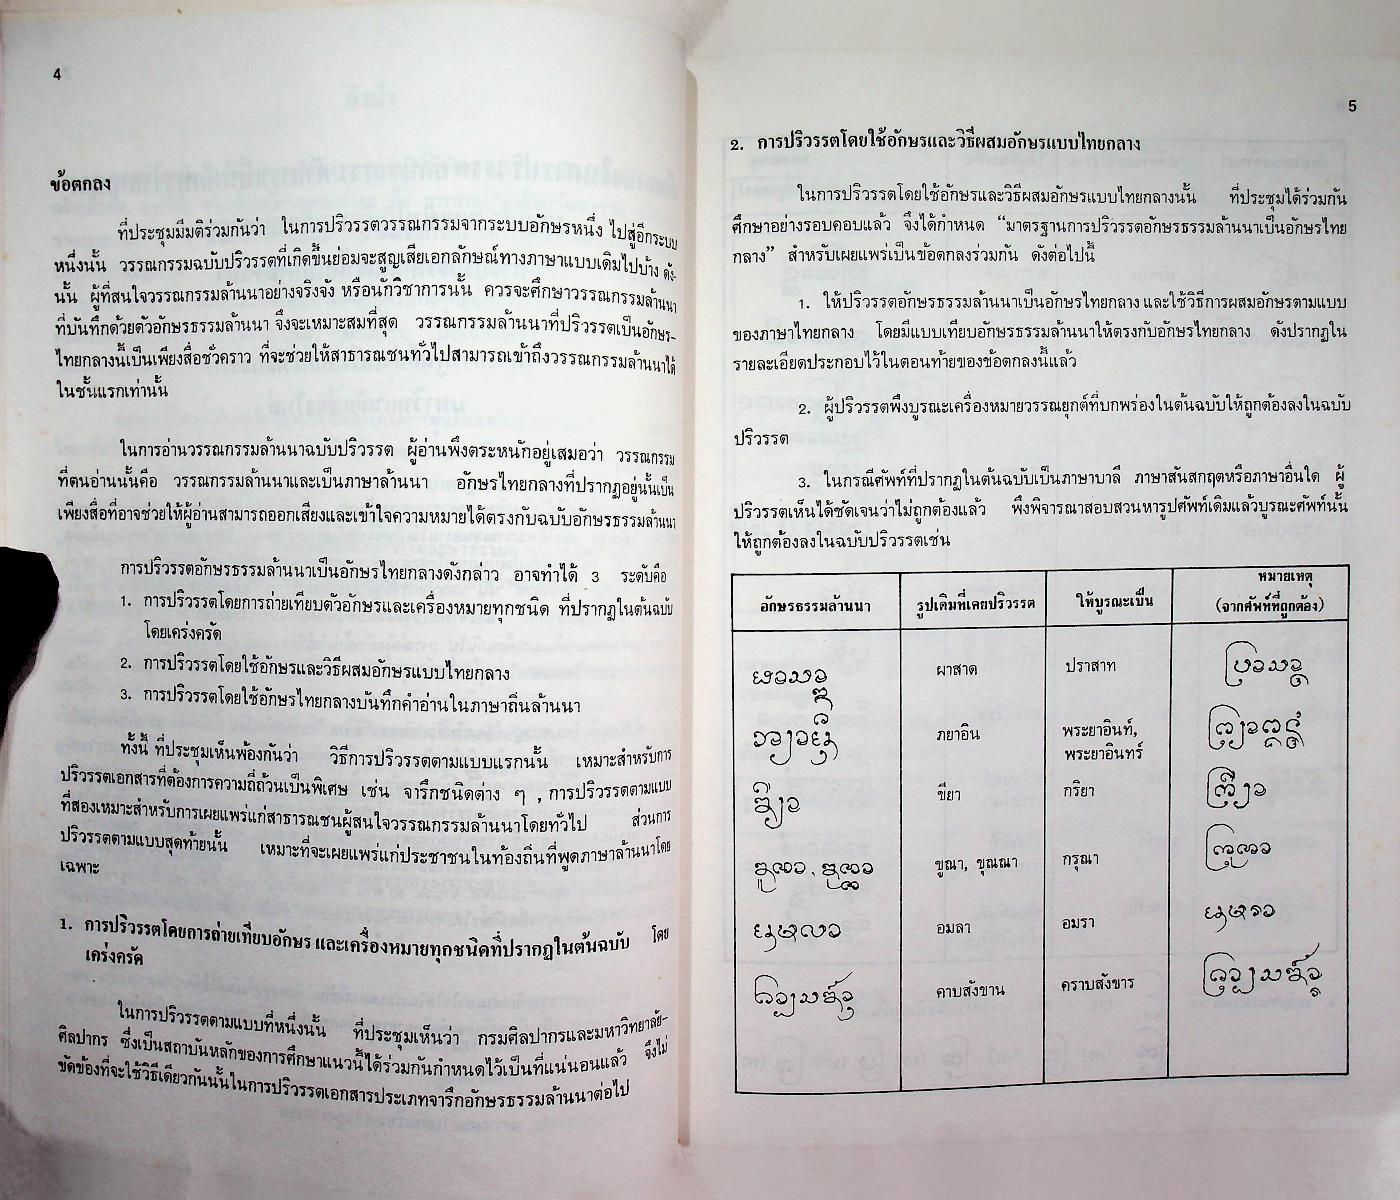 4
ข้อตกลง
ที่ประชุมมีมติร่วมกันว่า ในการปริวรรตวรรณกรรมจากระบบอักษรหนึ่ง ไปสู่อีกระบบ
หนึ่งนั้น วรรณกรรมฉบับปริวรรตที่เกิดขึ้นย่อมจะสูญเสียเอกลักษณ์ทางภาษาแบบเดิมไปบ้าง ดัง-
นั้น ผู้ที่สนใจวรรณกรรมล้านนาอย่างจริงจัง หรือนักวิชาการนั้น ควรจะศึกษาวรรณกรรมล้านนา
ที่บันทึกด้วยตัวอักษรธรรมล้านนา จึงจะเหมาะสมที่สุด วรรณกรรมล้านนาที่ปริวรรตเป็นอักษร-
ไทยกลางนี้เป็นเพียงสื่อชั่วคราว ที่จะช่วยให้สาธารณชนทั่วไปสามารถเข้าถึงวรรณกรรมล้านนาได้
ในชั้นแรกเท่านั้น
ในการอ่านวรรณกรรมล้านนาฉบับปริวรรต ผู้อ่านพึงตระหนักอยู่เสมอว่า วรรณกรรม
ที่ตนอ่านนั้นคือ วรรณกรรมล้านนาและเป็นภาษาล้านนา อักษรไทยกลางที่ปรากฏอยู่นั้นเป็น
เพียงสื่อที่อาจช่วยให้ผู้อ่านสามารถออกเสียงและเข้าใจความหมายได้ตรงกับฉบับอักษรธรรมล้านนา
การปริวรรตอักษรธรรมล้านนาเป็นอักษรไทยกลางดังกล่าว อาจทำได้ 3 ระดับคือ
1. การปริวรรตโดยการถ่ายเทียบตัวอักษรและเครื่องหมายทุกชนิด ที่ปรากฏในต้นฉบับ
โดยเคร่งครัด
2. การปริวรรตโดยใช้อักษรและวิธีผสมอักษรแบบไทยกลาง
3. การปริวรรตโดยใช้อักษรไทยกลางบันทึกคำอ่านในภาษาถิ่นล้านนา
ทั้งนี้ ที่ประชุมเห็นพ้องกันว่า วิธีการปริวรรตตามแบบแรกนั้น เหมาะสำหรับการ
ปริวรรตเอกสารที่ต้องการความถี่ถ้วนเป็นพิเศษ เช่น จารึกชนิดต่าง ๆ , การปริวรรตตามแบบ
ที่สองเหมาะสำหรับการเผยแพร่แก่สาธารณชนผู้สนใจวรรณกรรมล้านนาโดยทั่วไป ส่วนการ
ปริวรรตตามแบบสุดท้ายนั้น เหมาะที่จะเผยแพร่แก่ประชาชนในท้องถิ่นที่พูดภาษาล้านนาโดย
เฉพาะ
1. การปริวรรตโดยการถ่ายเทียบอักษร และเครื่องหมายทุกชนิดที่ปรากฏในต้นฉบับ โดย
เคร่งครัด
ในการปริวรรตตามแบบที่หนึ่งนั้น ที่ประชุมเห็นว่า กรมศิลปากรและมหาวิทยาลัย-
ศิลปากร ซึ่งเป็นสถาบันหลักของการศึกษาแนวนี้ได้ร่วมกันกำหนดไว้เป็นที่แน่นอนแล้ว จึงไม่
ขัดข้องที่จะใช้วิธีเดียวกันนั้นในการปริวรรตเอกสารประเภทจารึกอักษรธรรมล้านนาต่อไป
5
2. การปริวรรตโดยใช้อักษรและวิธีผสมอักษรแบบไทยกลาง
ในการปริวรรตโดยใช้อักษรและวิธีผสมอักษรแบบไทยกลางนั้น ที่ประชุมได้ร่วมกัน
ศึกษาอย่างรอบคอบแล้ว จึงได้กำหนด "มาตรฐานการปริวรรตอักษรธรรมล้านนาเป็นอักษรไทย
กลาง" สำหรับเผยแพร่เป็นข้อตกลงร่วมกัน ดังต่อไปนี้
1. ให้ปริวรรตอักษรธรรมล้านนาเป็นอักษรไทยกลาง และใช้วิธีการผสมอักษรตามแบบ
ของภาษาไทยกลาง โดยมีแบบเทียบอักษรธรรมล้านนาให้ตรงกับอักษรไทยกลาง ดังปรากฏใน
รายละเอียดประกอบไว้ในตอนท้ายของข้อตกลงนี้แล้ว
2. ผู้ปริวรรตพึงบูรณะเครื่องหมายวรรณยุกต์ที่บกพร่องในต้นฉบับให้ถูกต้องลงในฉบับ
ปริวรรต
3. ในกรณีศัพท์ที่ปรากฏในต้นฉบับเป็นภาษาบาลี ภาษาสันสกฤตหรือภาษาอื่นใด ผู้
ปริวรรตเห็นได้ชัดเจนว่าไม่ถูกต้องแล้ว พึงพิจารณาสอบสวนหารูปศัพท์เดิมแล้วบูรณะศัพท์นั้น
ให้ถูกต้องลงในฉบับปริวรรตเช่น
อักษรธรรมล้านนา รูปเดิมที่เคยปริวรรต ให้บูรณะเป็น หมายเหตุ
(จากศัพท์ที่ถูกต้อง)
ผาสาด ปราสาท
ภยาอิน พระยาอินท์,
พระยาอินทร์
ขียา กริยา
ขูณา, ขุณณา กรุณา
อมลา อมรา
คาบสังขาน คราบสังขาร